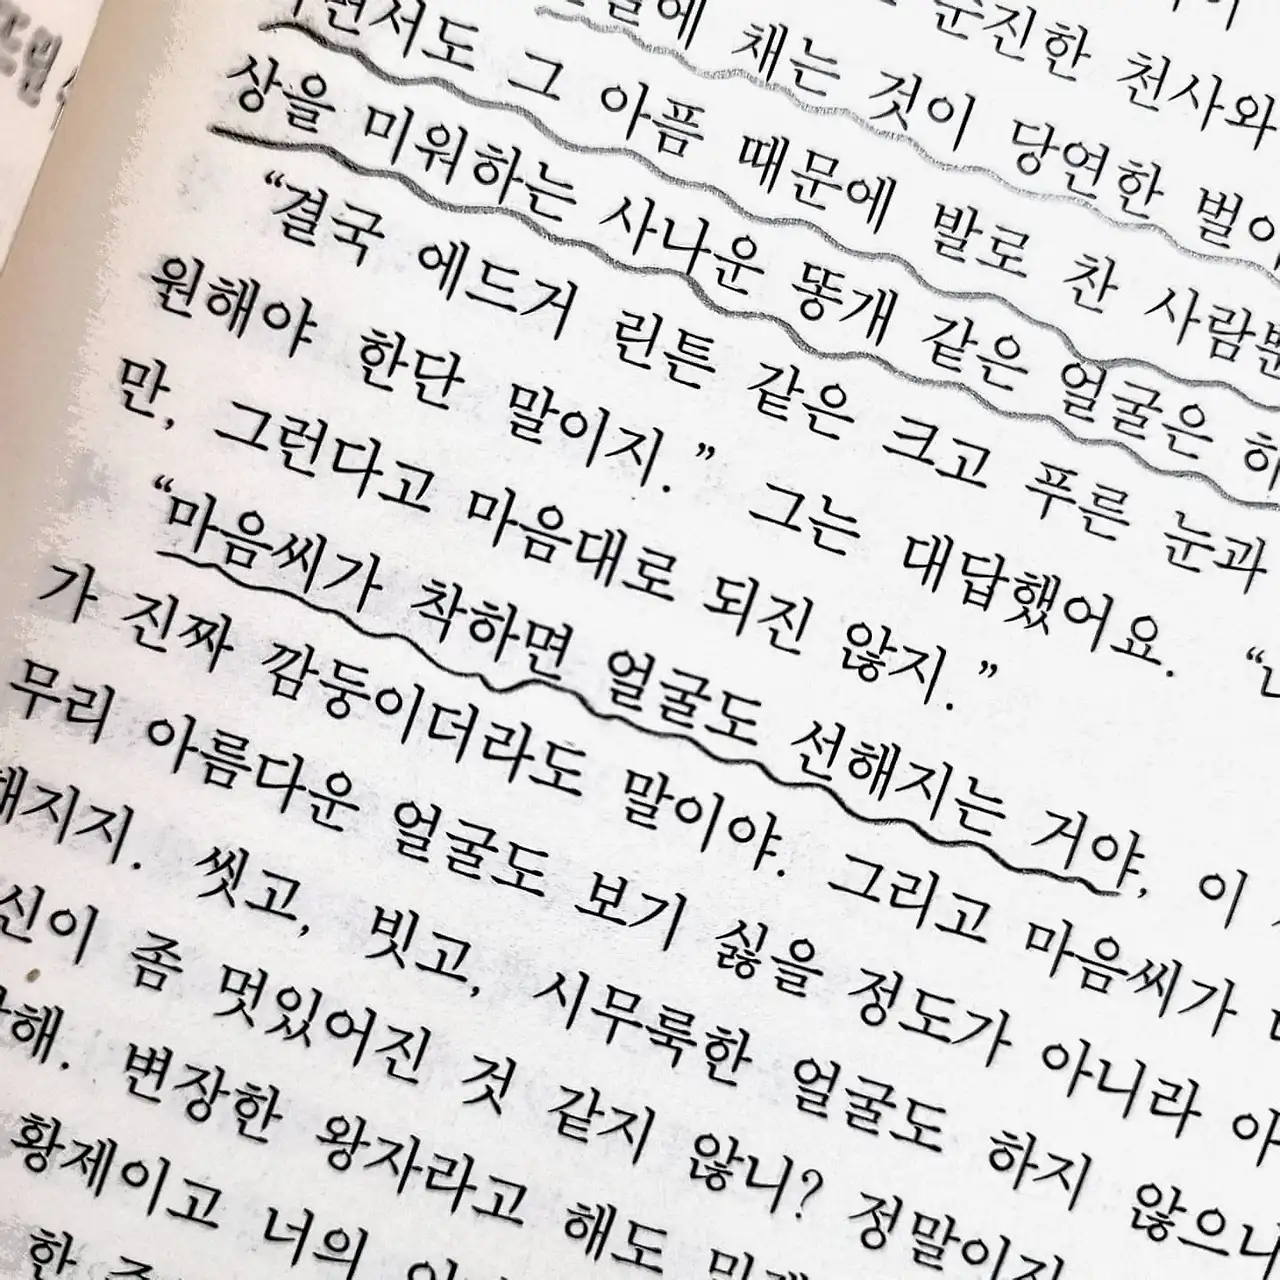 순진한 천사와
채는 것이 당연한
그 아픔 때문에 발로 찬
상을 미워하는 사나운 똥개 같은 얼굴은
“결국 에드거 린튼 같은 크고 푸른 눈과
원해야 한단 말이지.” 그는 대답했어요.
만, 그런다고 마음대로 되진 않지.”
“마음씨가 착하면 얼굴도 선해지는 거야, 이
가 진짜 깜둥이더라도 말이야. 그리고 마음씨가
무리 아름다운 얼굴도 보기 싫을 정도가 아니라
해지지. 씻고, 빗고, 시무룩한 얼굴도 하지 않으니
신이 좀 멋있어진 것 같지 않니? 정말이지
해. 변장한 왕자라고 해도
황제이고 너의
한